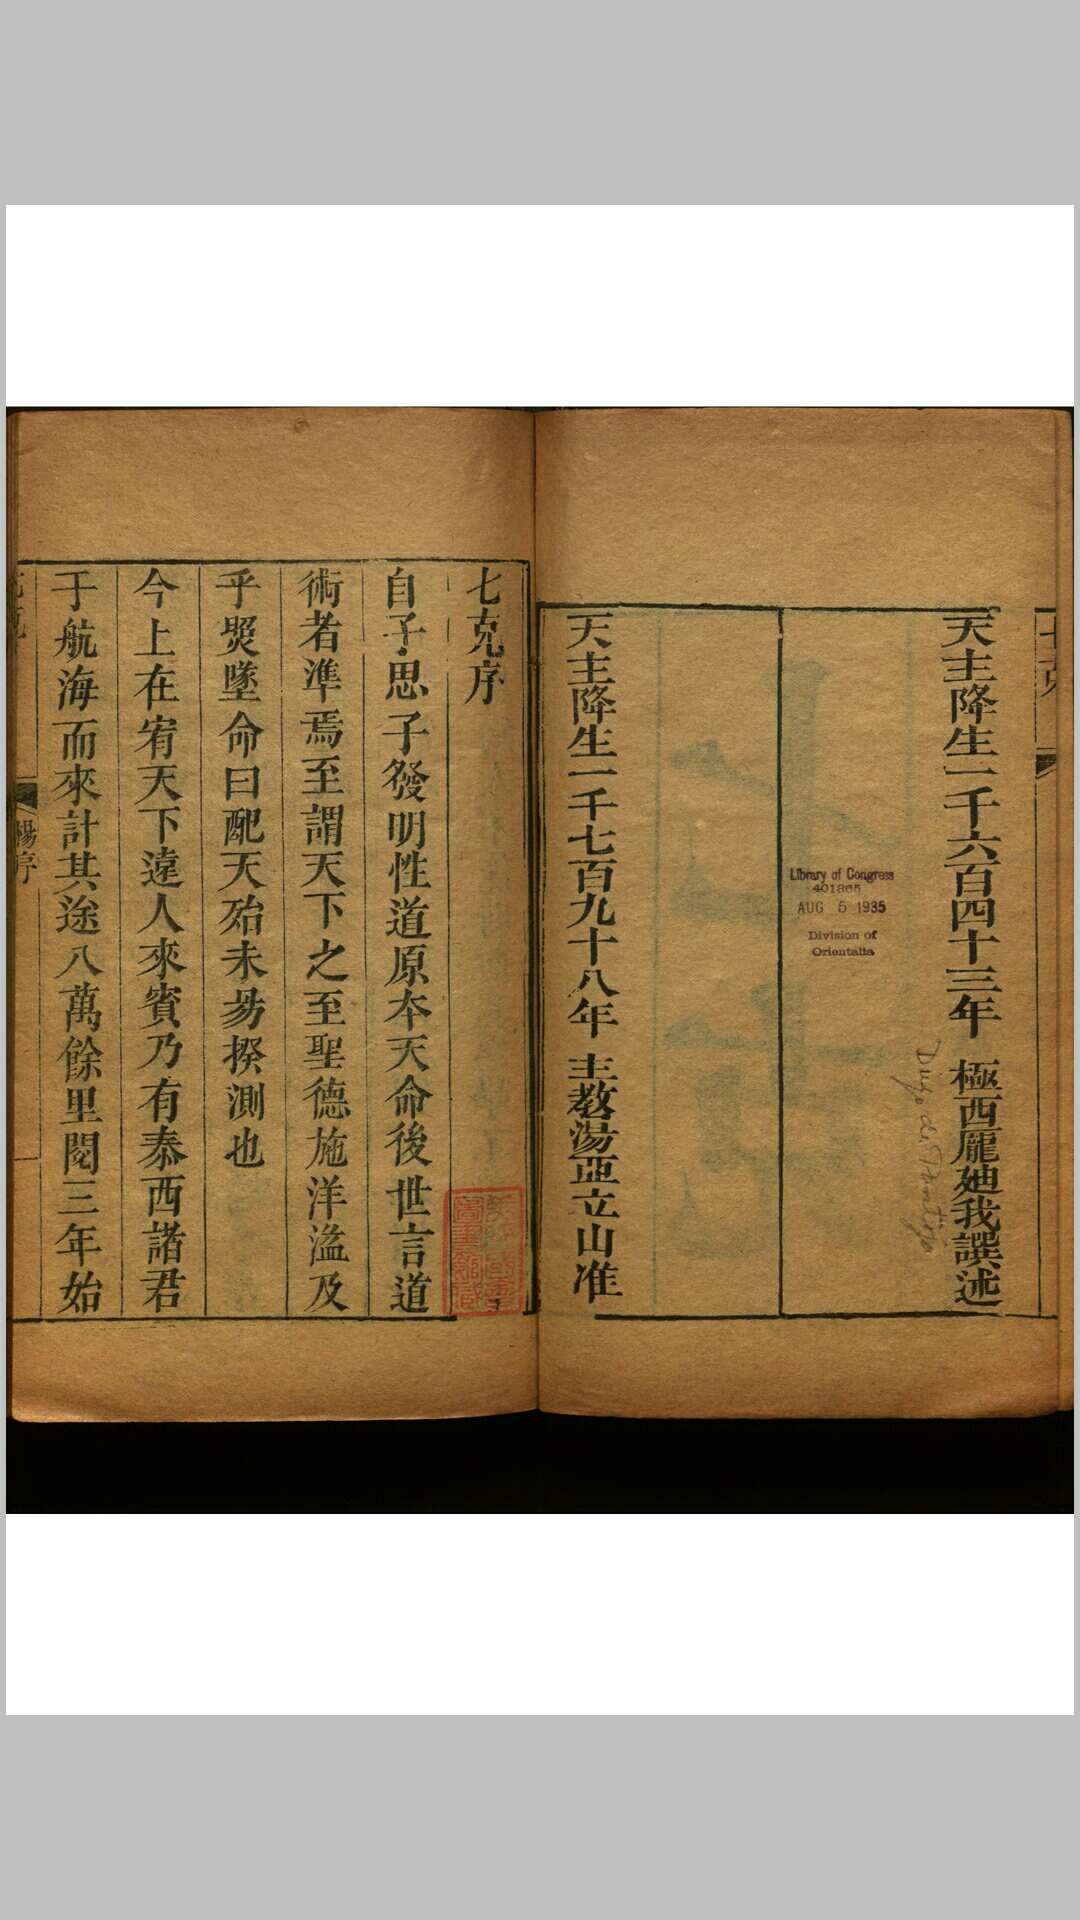 天主降生一千六百四十三年 極西龐迪我譔述
Library of Congress
401865
AUG 5 1935
Division of
Orientalia
天主降生一千七百九十八年 主教湯亞立山准
七克序
自子思子發明性道原本天命後世言道
術者準焉至謂天下之至聖德施洋溢及
乎煛墜命曰配天殆未易揆測也
今上在宥天下遠人來賓乃有泰西諸君
于航海而來計其途八萬餘里閱三年始
楊序